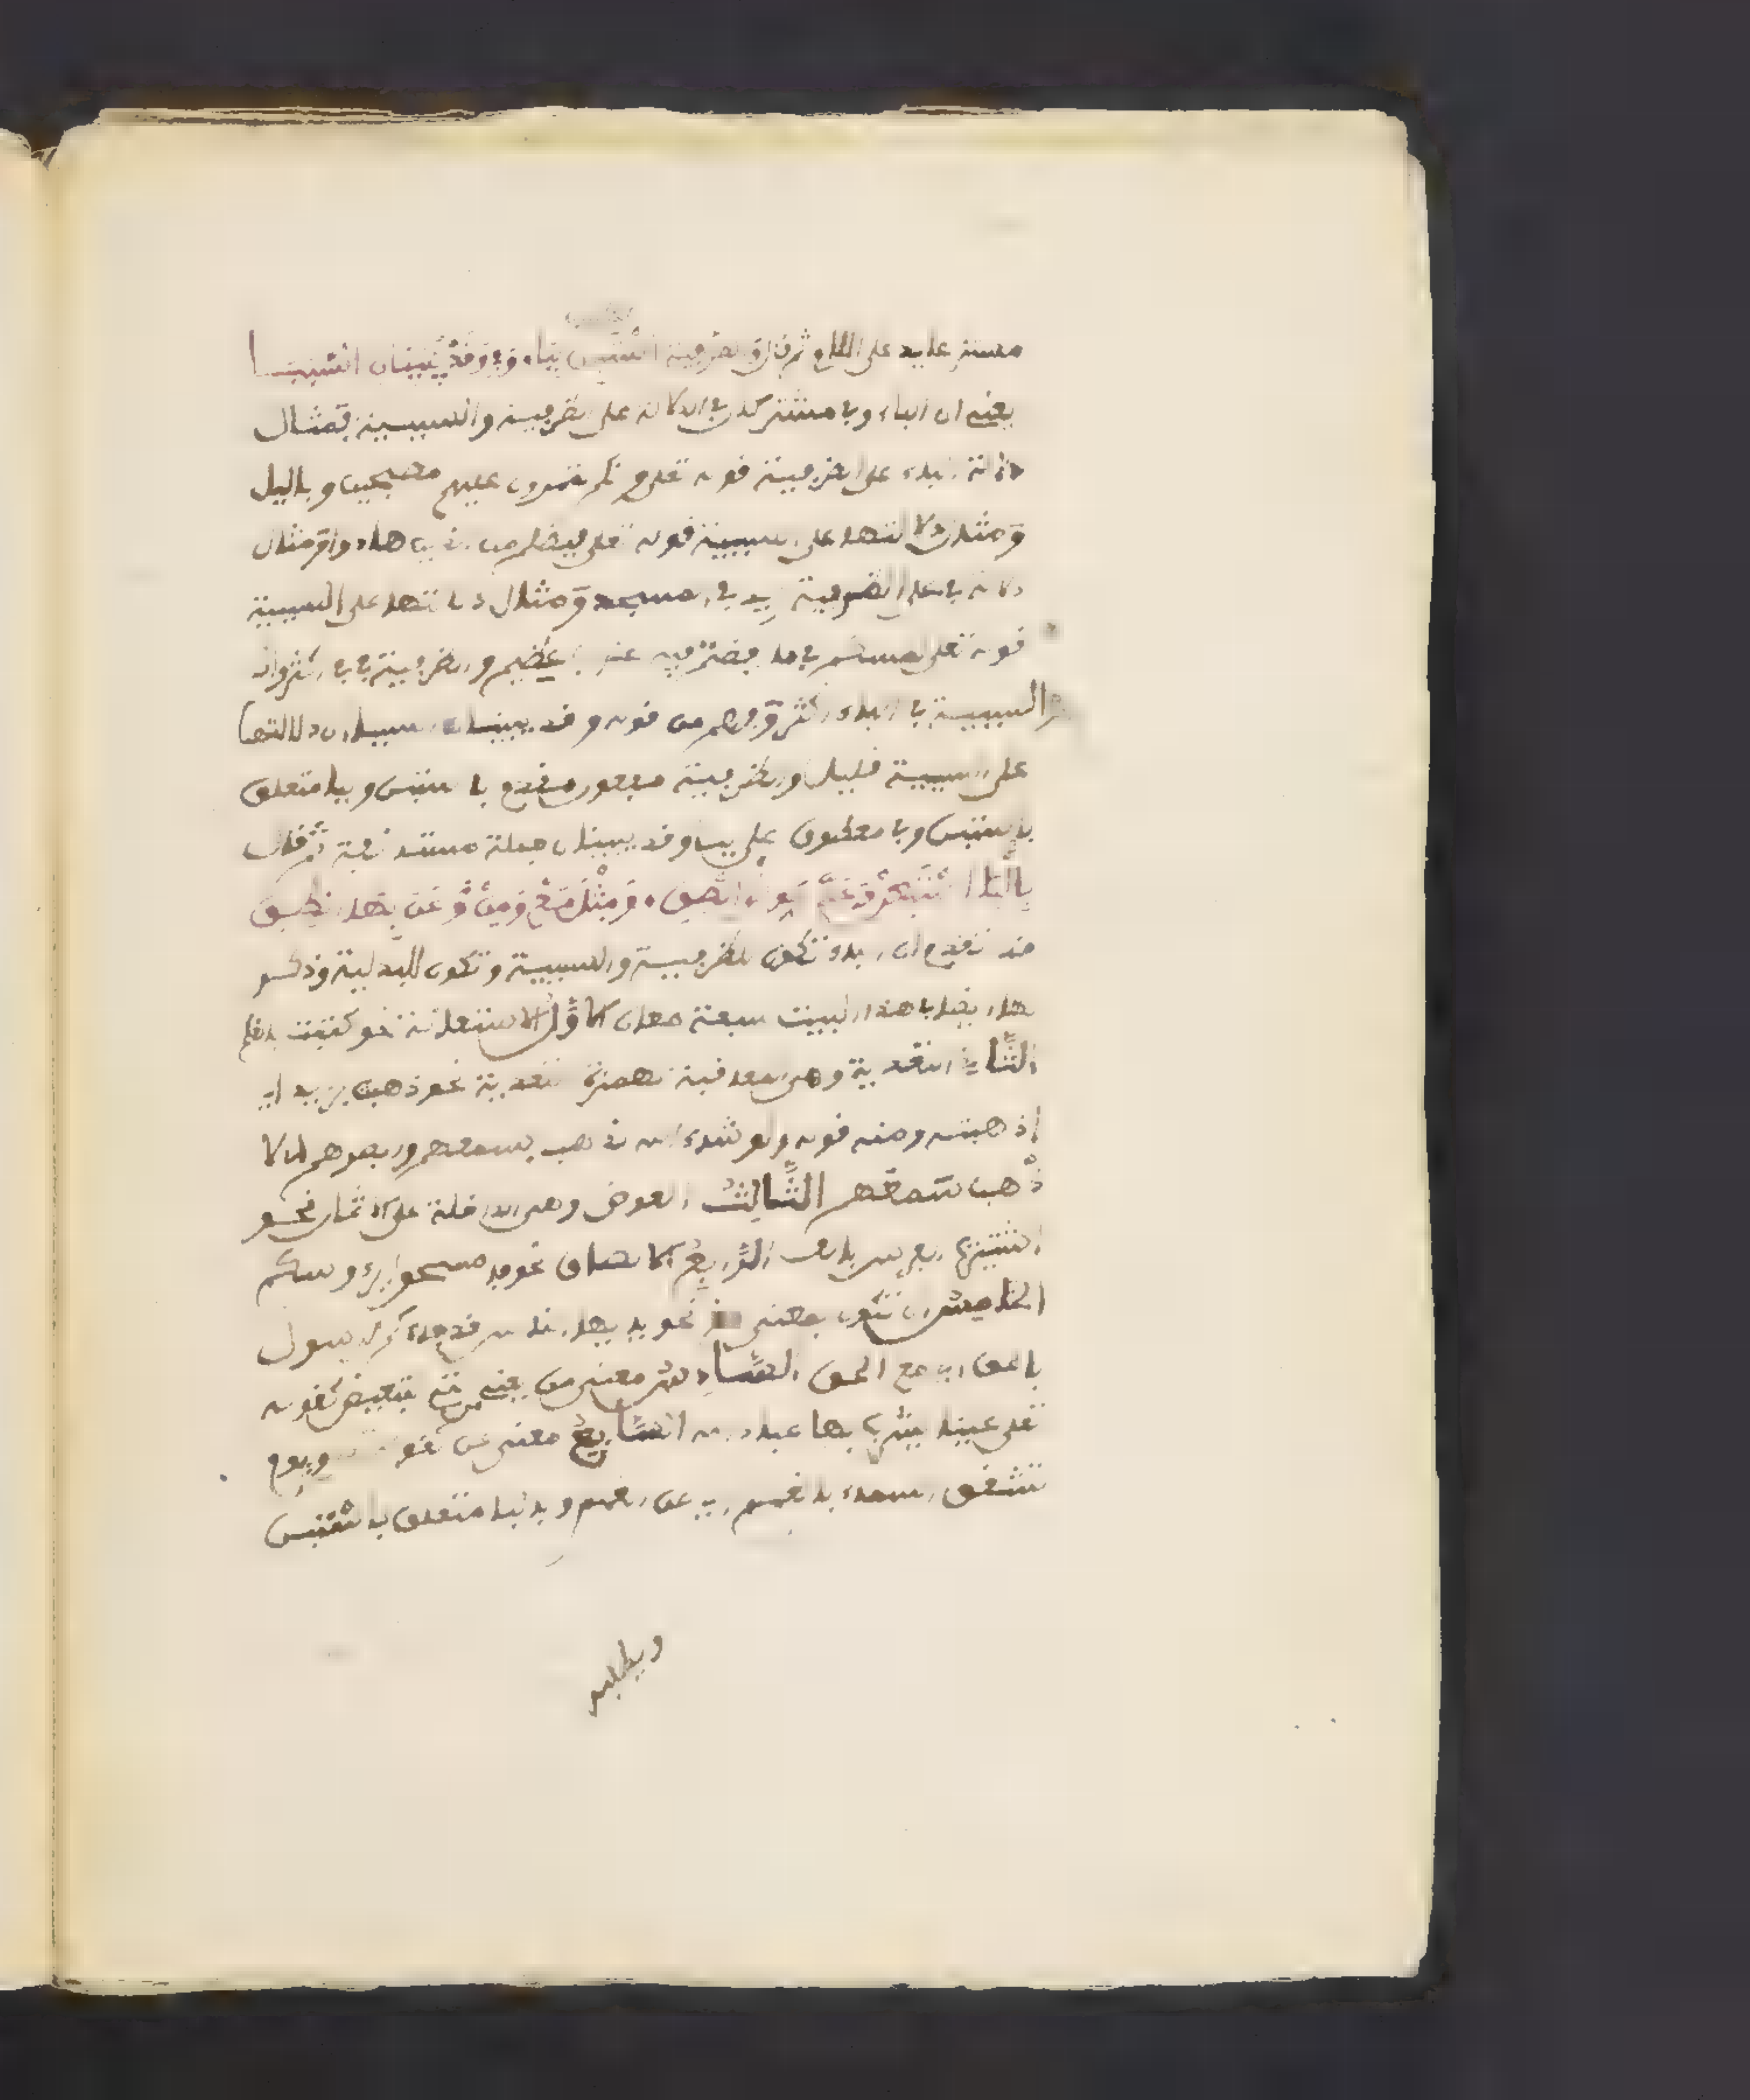 مستتر عايد على اللام ثم قال والظرفية استبن ببا وفي وقد يبينان السببا
يعني ان الباء وفي مشتركان في الدلالة على الظرفية والسببية فمثال
دلالة الباء على الظرفية قوله تعلى وانكم لتمرون عليهم مصبحين وباليل
ومثال دلالتها على السببية قوله تعلى فبظلم من الذين هادوا ومثال
دلالة في على الظرفية زيد في المسجد ومثال دلالتها على السببية
قوله تعلى لمسكم في ما افضتم فيه عذاب عظيم والظرفية في في اكثر وان
السببية في الباء اكثر وفهم من قوله وقد يبينان السببا ان دلالتها
على السببية قليل والظرفية مفعول مقدم باستبن وببا متعلق
باستبن وفي معطوف على ببا وقد يبينان جملة مستانفة ثم قال
بالبا استعن وعد عوض الصق ومثل مع ومن وعن بها انطق
قد تقدم ان الباء تكون للظرفية والسببية وتكون للبدلية وذكر
لها ايضا في هذا البيت سبعة معان الاول الاستعانة نحو كتبت بالقلم
الثاني التعدية وهي المعاقبة لهمزة التعدية نحو ذهبت بزيد اي
اذهبته ومنه قوله ولو شاء الله لذهب بسمعهم وابصرهم اي لا
ذهب سمعهم الثالث العوض وهي الداخلة على الاثمان نحو
اشتريت الفرس بالف الرابع الالصاق نحو وامسحوا برءوسكم
الخامس ان تكون بمعنى مع نحو يايها الناس قد جاءكم الرسول
بالحق اي مع الحق السادس معنى من يعني التي للتبعيض كقوله
تعلى عينا يشرب بها عباد الله السابع معنى عن كقوله ويوم
تشقق السماء بالغمم اي عن الغمم وبالبا متعلق باستعن
ويطلبه